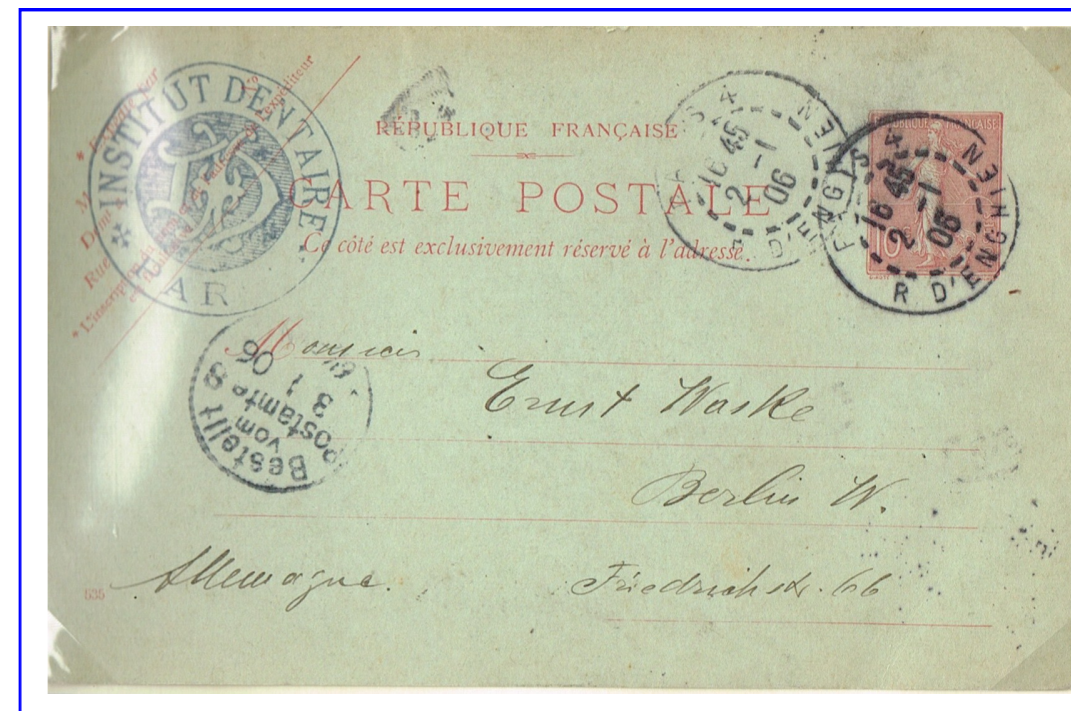 INSTITUT DENTAIRE
PAR
RÉPUBLIQUE FRANÇAISE
CARTE POSTALE
Ce côté est exclusivement réservé à l'adresse.
16 45
2 -1
06
D'ENGHIEN
RÉPUBLIQUE FRANÇAISE
16 45
2 -1
06
R D'ENGHIEN
Bestellt
vom
Postamte 8
3 1
06
Monsieur
Ernst Waske
Berlin W.
Allemagne. Friedrichstr. 66
535